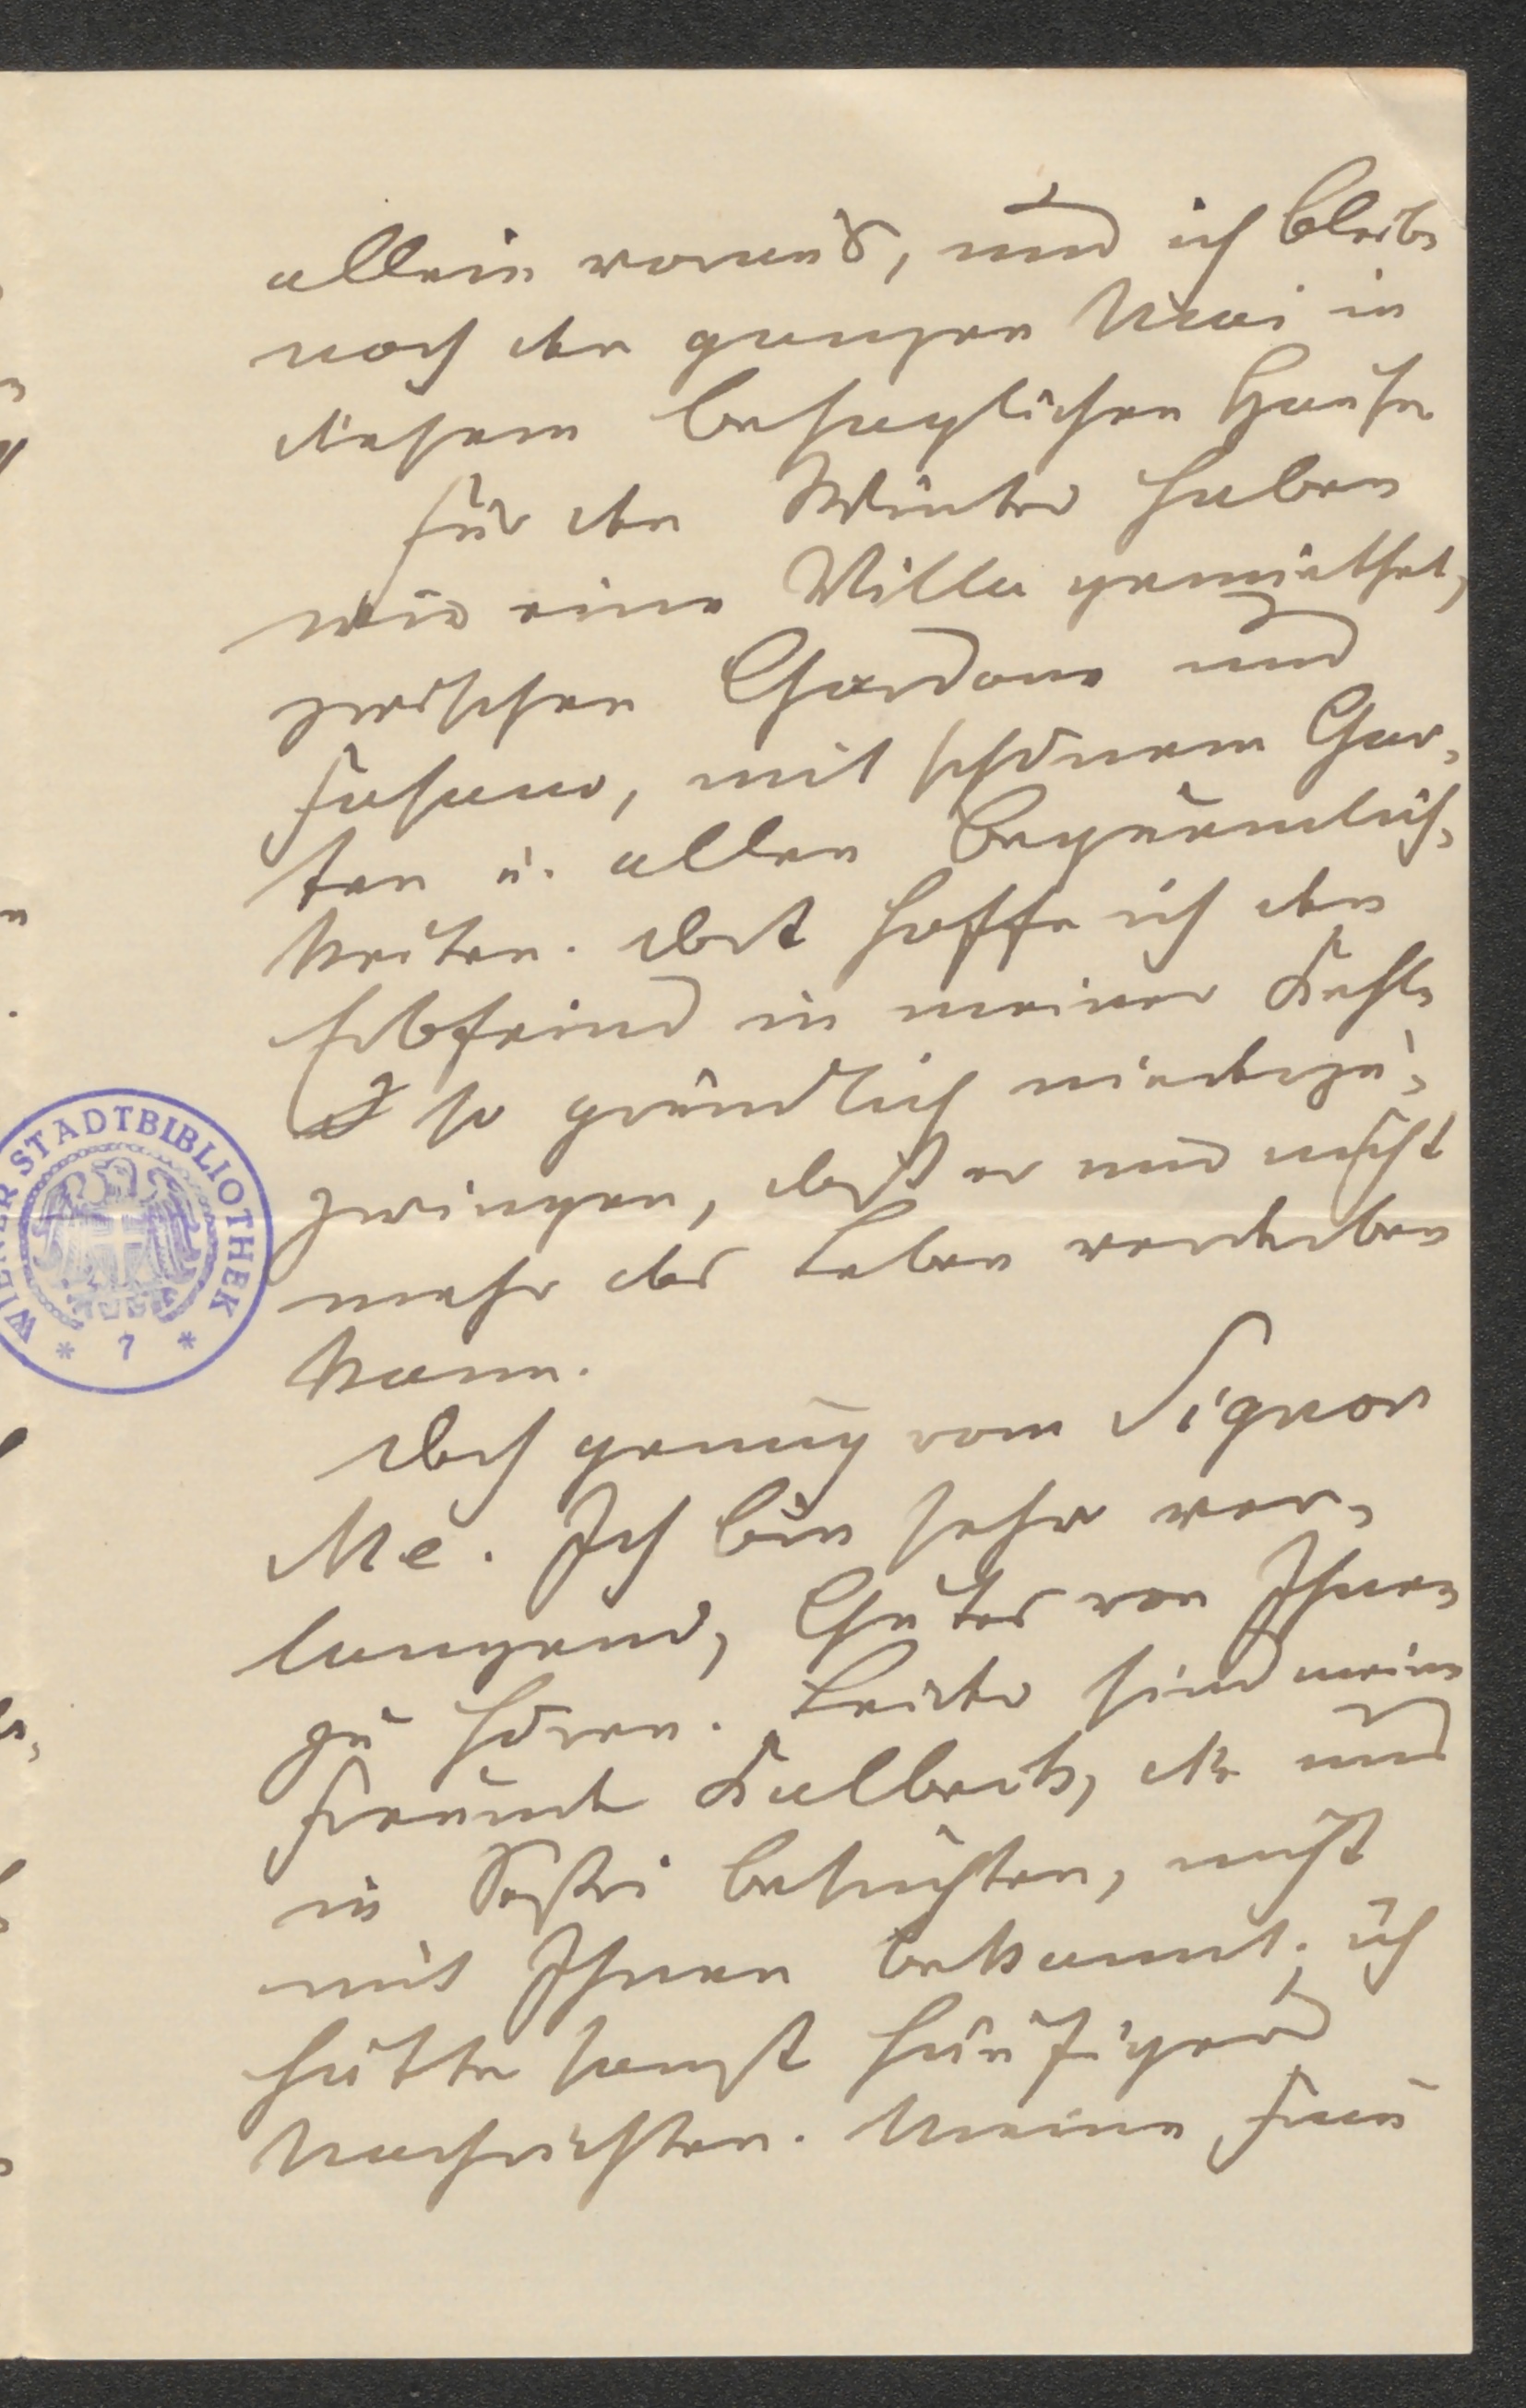 allein voraus, und ich bleibe
noch den ganzen Mai in
diesem behaglichen Hause
Für den Winter haben
wir eine Villa gemiethet,
zwischen Gardone und
Fasano, mit schönem Gar-
ten u. allen Bequemlich-
keiten. Dort hoffe ich den
Erbfeind in meiner Kehle
so gründlich niederzu-
zwingen, daß er mir nicht
mehr das Leben verderben
kann.
Doch genug vom Signor
Me. Ich bin sehr ver-
langend, Gutes von Ihnen
zu hören. Leider sind meine
Freunde Kalbeck, die uns
in Sestri besuchten, nicht
mit Ihnen bekannt; ich
hätte sonst häufiger
Nachrichten. Meine Frau
WIENER STADTBIBLIOTHEK
* 7 *